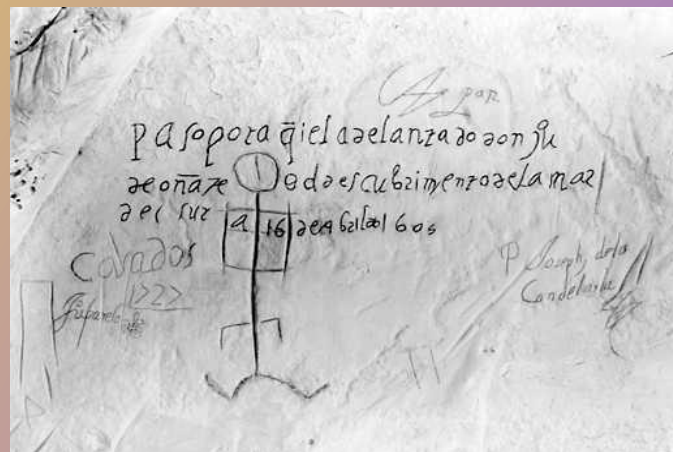 paso por aq̃i el adelantado don jũ
de oñate al descubrimento de la mar
del sur a 16 de Abril do 1605
Casados
1727
P Joseph de la
Candelaria